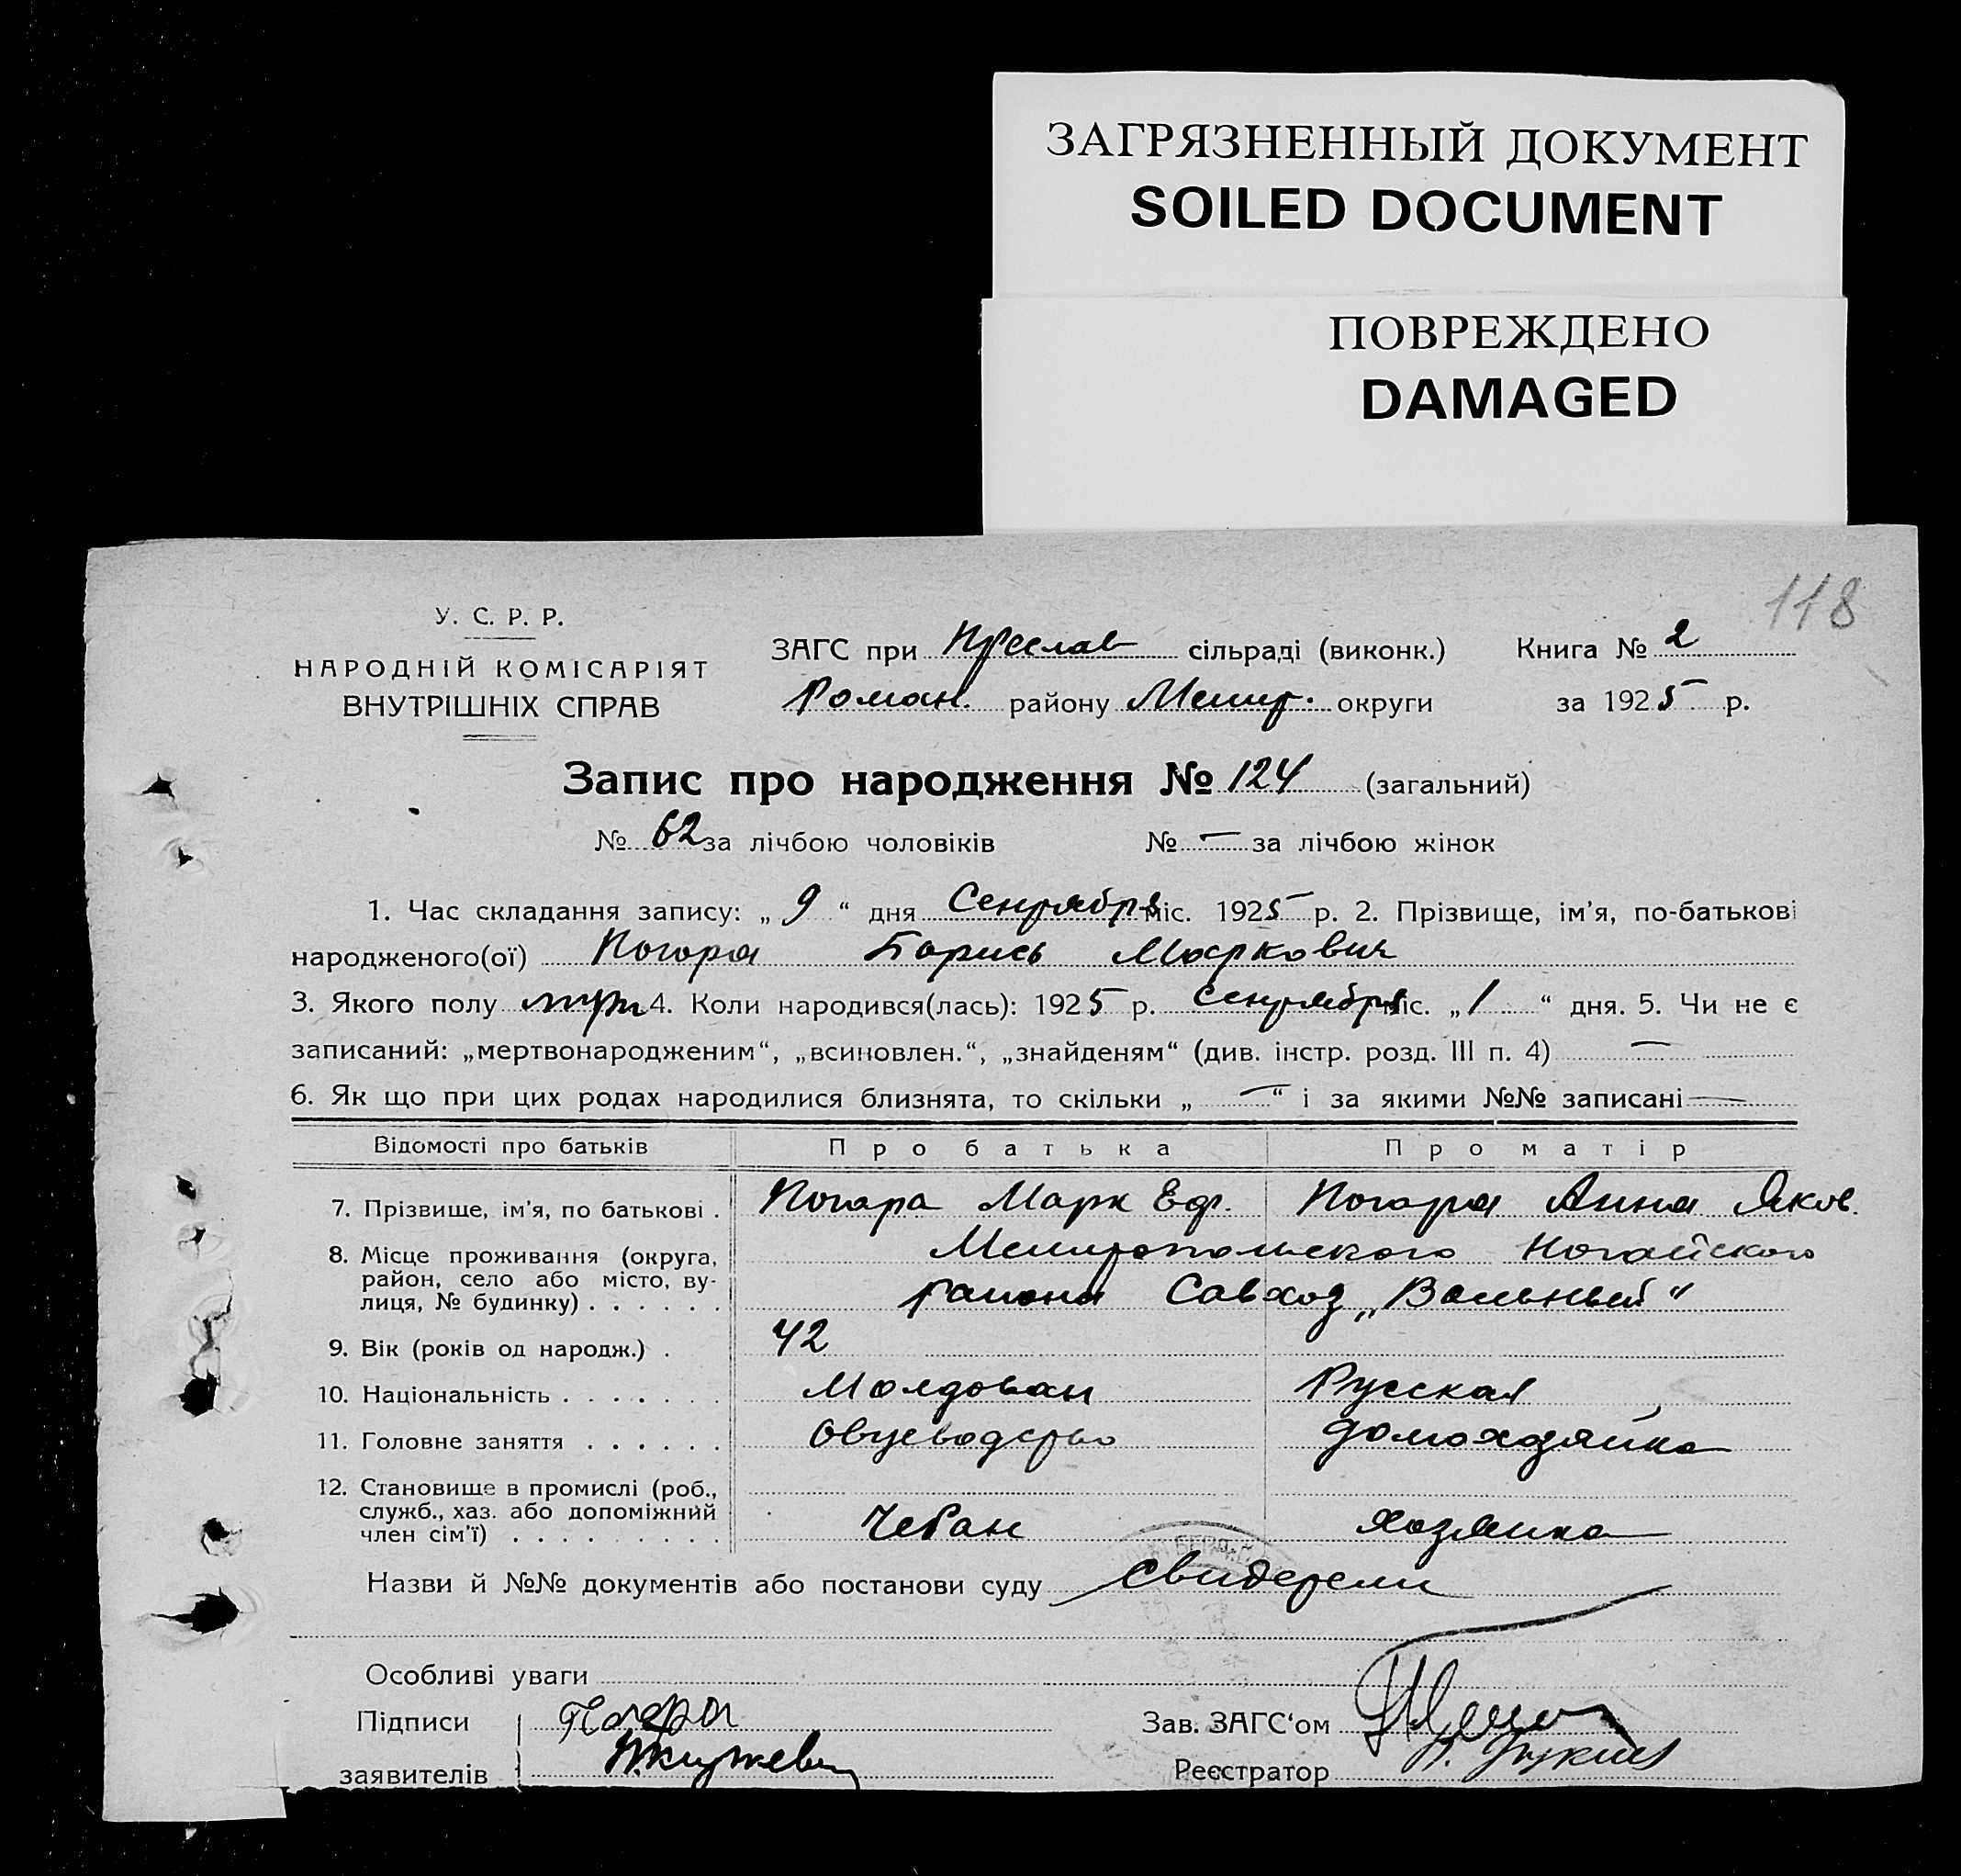 ЗАГРЯЗНЕННЫЙ ДОКУМЕНТ
SOILED DOCUMENT
ПОВРЕЖДЕНО
DAMAGED
118
У. С. Р. Р.
НАРОДНІЙ КОМІСАРІЯТ
ВНУТРІШНІХ СПРАВ
ЗАГС при Преслав сільраді (виконк.)
Роман. району Мелит. округи
Книга № 2
за 1925 р.
Запис про народження № 124 (загальний)
№ 62 за лічбою чоловіків № — за лічбою жінок
1. Час складання запису: „ 9 “ дня Сентября міс. 1925 р. 2. Прізвище, ім’я, по-батькові
народженого(ої) Погара Борись Маркович
3. Якого полу муж 4. Коли народився(лась): 1925 р. Сентября міс. „ 1 “ дня. 5. Чи не є
записаний: „мертвонародженим“, „всиновлен.“, „знайденям“ (див. інстр. розд. III п. 4) —
6. Як що при цих родах народилися близнята, то скільки „ — “ і за якими №№ записані —
Відомості про батьків Про батька Про матір
7. Прізвище, ім’я, по батькові . Погара Марк Еф. Погара Анна Яков.
8. Місце проживання (округа, Мелитопольского Ногайского
район, село або місто, ву-
лиця, № будинку) . . . . . . района Совхоз „Вольный“
9. Вік (років од народж.) . 42
10. Національність . . . . . . . Молдован Русская
11. Головне заняття . . . . . . Овцеводство домохозяйка
12. Становище в промислі (роб.,
служб., хаз. або допоміжний
член сім’ї) . . . . . . . . . Чебан хозяйка
Назви й №№ документів або постанови суду свидетели
Особливі уваги
Підписи Погара
заявителів
Зав. ЗАГС‘ом
Реєстратор